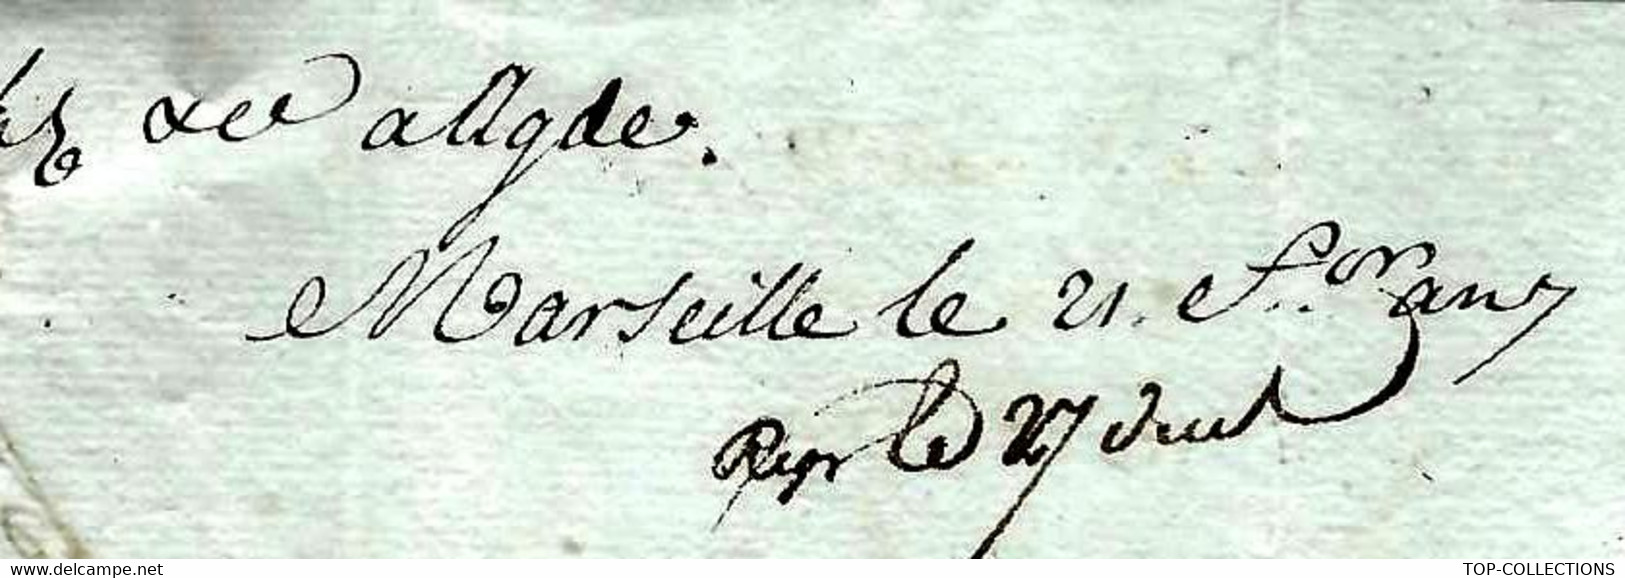 a Agde.
Marseille le 21. f.or an 7
Rep le 27 dud
www.delcampe.net TOP-COLLECTIONS